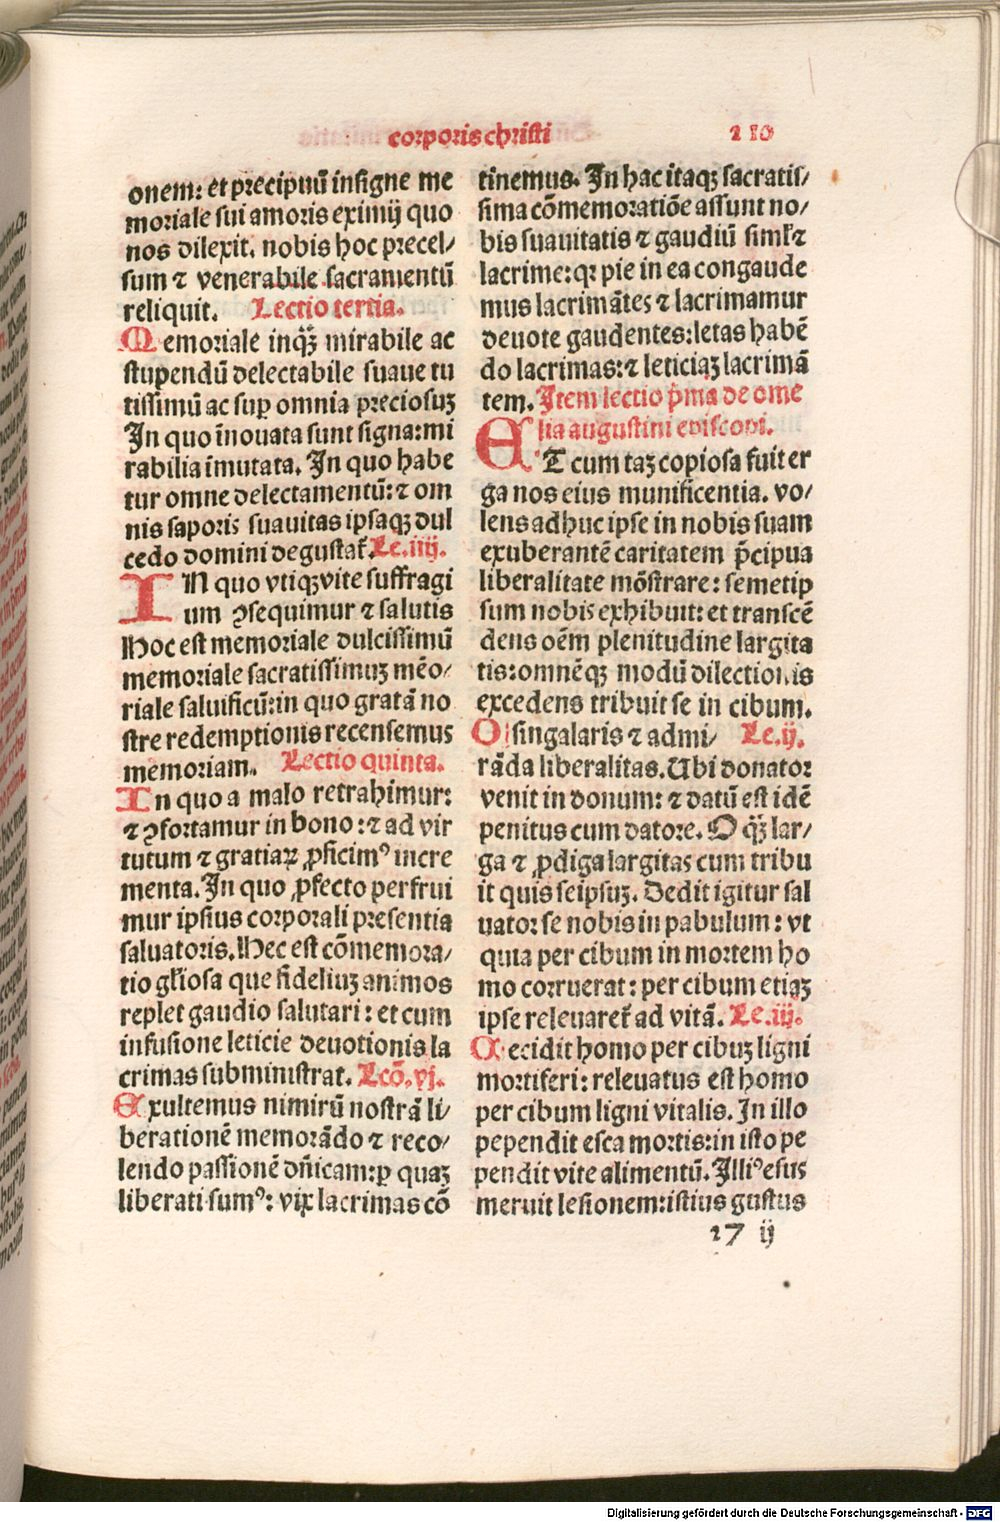 corporis christi 210
onem: et precipuū insigne me
moriale sui amoris eximij quo
nos dilexit. nobis hoc precel/
sum ⁊ venerabile sacramentū
reliquit. Lectio tertia.
Memoriale inqꝫ mirabile ac
stupendū delectabile suaue tu
tissimū ac suꝑ omnia preciosuꝫ
In quo īnouata sunt signa: mi
rabilia īmutata. In quo habe
tur omne delectamentū: ⁊ om
nis saporis suauitas ipsaqꝫ dul
cedo domini degustat̃. Le.iiij.
IN quo vtiqꝫ vite suffragi
um ꝯsequimur ⁊ salutis
Hoc est memoriale dulcissimū
memoriale sacratissimuꝫ mēo/
riale saluificū: in quo gratā no
stre redemptionis recensemus
memoriam. Lectio quinta.
In quo a malo retrahimur:
⁊ ꝯfortamur in bono: ⁊ ad vir
tutum ⁊ gratiaꝝ ꝓficimꝰ incre
menta. In quo ꝓfecto perfrui
mur ipsius corporali presentia
saluatoris. Hec est cōmemora/
tio gl̃iosa que fideliuꝫ animos
replet gaudio salutari: et cum
infusione leticie deuotionis la
crimas subministrat. Lcō.vj.
Exultemus nimirū nostrā li/
berationē memorādo ⁊ reco/
lendo passionē dñicam: ꝑ quaꝫ
liberati sumꝰ: vix lacrimas cō
tinemus. In hac itaqꝫ sacratis/
sima cōmemoratiōe assunt no/
bis suauitatis ⁊ gaudiū siml̃ ⁊
lacrime: qꝛ pie in ea congaude
mus lacrimātes ⁊ lacrimamur
deuote gaudentes: letas habē
do lacrimas: ⁊ leticiaꝫ lacrimā
tem. Item lectio p̄ma de ome
lia augustini episcopi.
ET cum taꝫ copiosa fuit er
ga nos eius munificentia. vo/
lens adhuc ipse in nobis suam
exuberantē caritatem p̄cipua
liberalitate mōstrare: semetip
sum nobis exhibuit: et transcē
dens oēm plenitudine largita
tis: omnēqꝫ modū dilectionis
excedens tribuit se in cibum.
O singularis ⁊ admi/ Le.ij.
rāda liberalitas. Ubi donator
venit in donum: ⁊ datū est idē
penitus cum datore. O qꝫ lar/
ga ⁊ ꝓdiga largitas cum tribu
it quis seipsuꝫ. Dedit igitur sal
uator se nobis in pabulum: vt
quia per cibum in mortem ho
mo corruerat: per cibum etiaꝫ
ipse releuaret̃ ad vitā. Le.iij.
Cecidit homo per cibuꝫ ligni
mortiferi: releuatus est homo
per cibum ligni vitalis. In illo
pependit esca mortis: in isto pe
pendit vite alimentū. Illiꝰ esus
meruit lesionem: istius gustus
27 ij
Digitalisierung gefördert durch die Deutsche Forschungsgemeinschaft - DFG